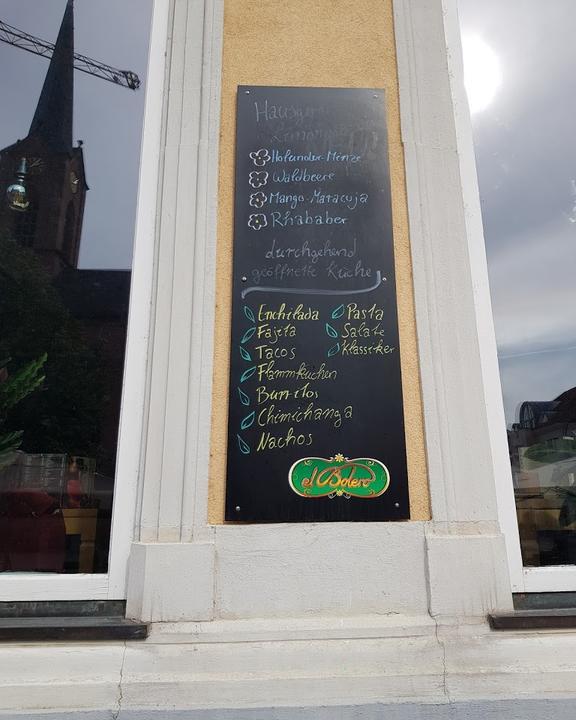 Hausgem
Limonaden
Holunder-Minze
Waldbeere
Mango-Maracuja
Rhababer
durchgehend
geöffnete Küche
Enchilada
Fajita
Tacos
Flammkuchen
Burritos
Chimichanga
Nachos
Pasta
Salate
Klassiker
el Bolero